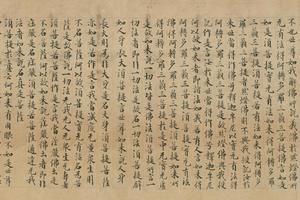 不也世尊如我解佛所說義佛於然燈佛所
无有法得阿耨多羅三藐三菩提佛言如是如是
須菩提實无有法如來得阿耨多羅三藐三菩提
須菩提若有法如來得阿耨多羅三藐
三菩提者然燈佛則不與我受記汝於
來世當得作佛號釋迦牟尼以實无有法得
阿耨多羅三藐三菩提是故然燈佛與我受
記作是言汝於來世當得作佛號釋迦牟尼
何以故如來者即諸法如義若有人言如來
得阿耨多羅三藐三菩提須菩提實无有法
佛得阿耨多羅三藐三菩提須菩提如來所
得阿耨多羅三藐三菩提於是中无實无虛
是故如來說一切法皆是佛法須菩提所言一
切法者即非一切法是故名一切法須菩提譬
如人身長大須菩提言世尊如來說人身
長大則為非大身是名大身須菩提菩薩
亦如是若作是言我當滅度无量眾生則
不名菩薩何以故須菩提實无有法名為菩
薩是故佛說一切法无我无人无眾生无壽
者須菩提若菩薩作是言我當莊嚴佛土
是不名菩薩何以故如來說莊嚴佛土者即
非莊嚴是名莊嚴須菩提若菩薩通達无我
法者如來說名真是菩薩
須菩提於意云何如來有肉眼不如是世尊